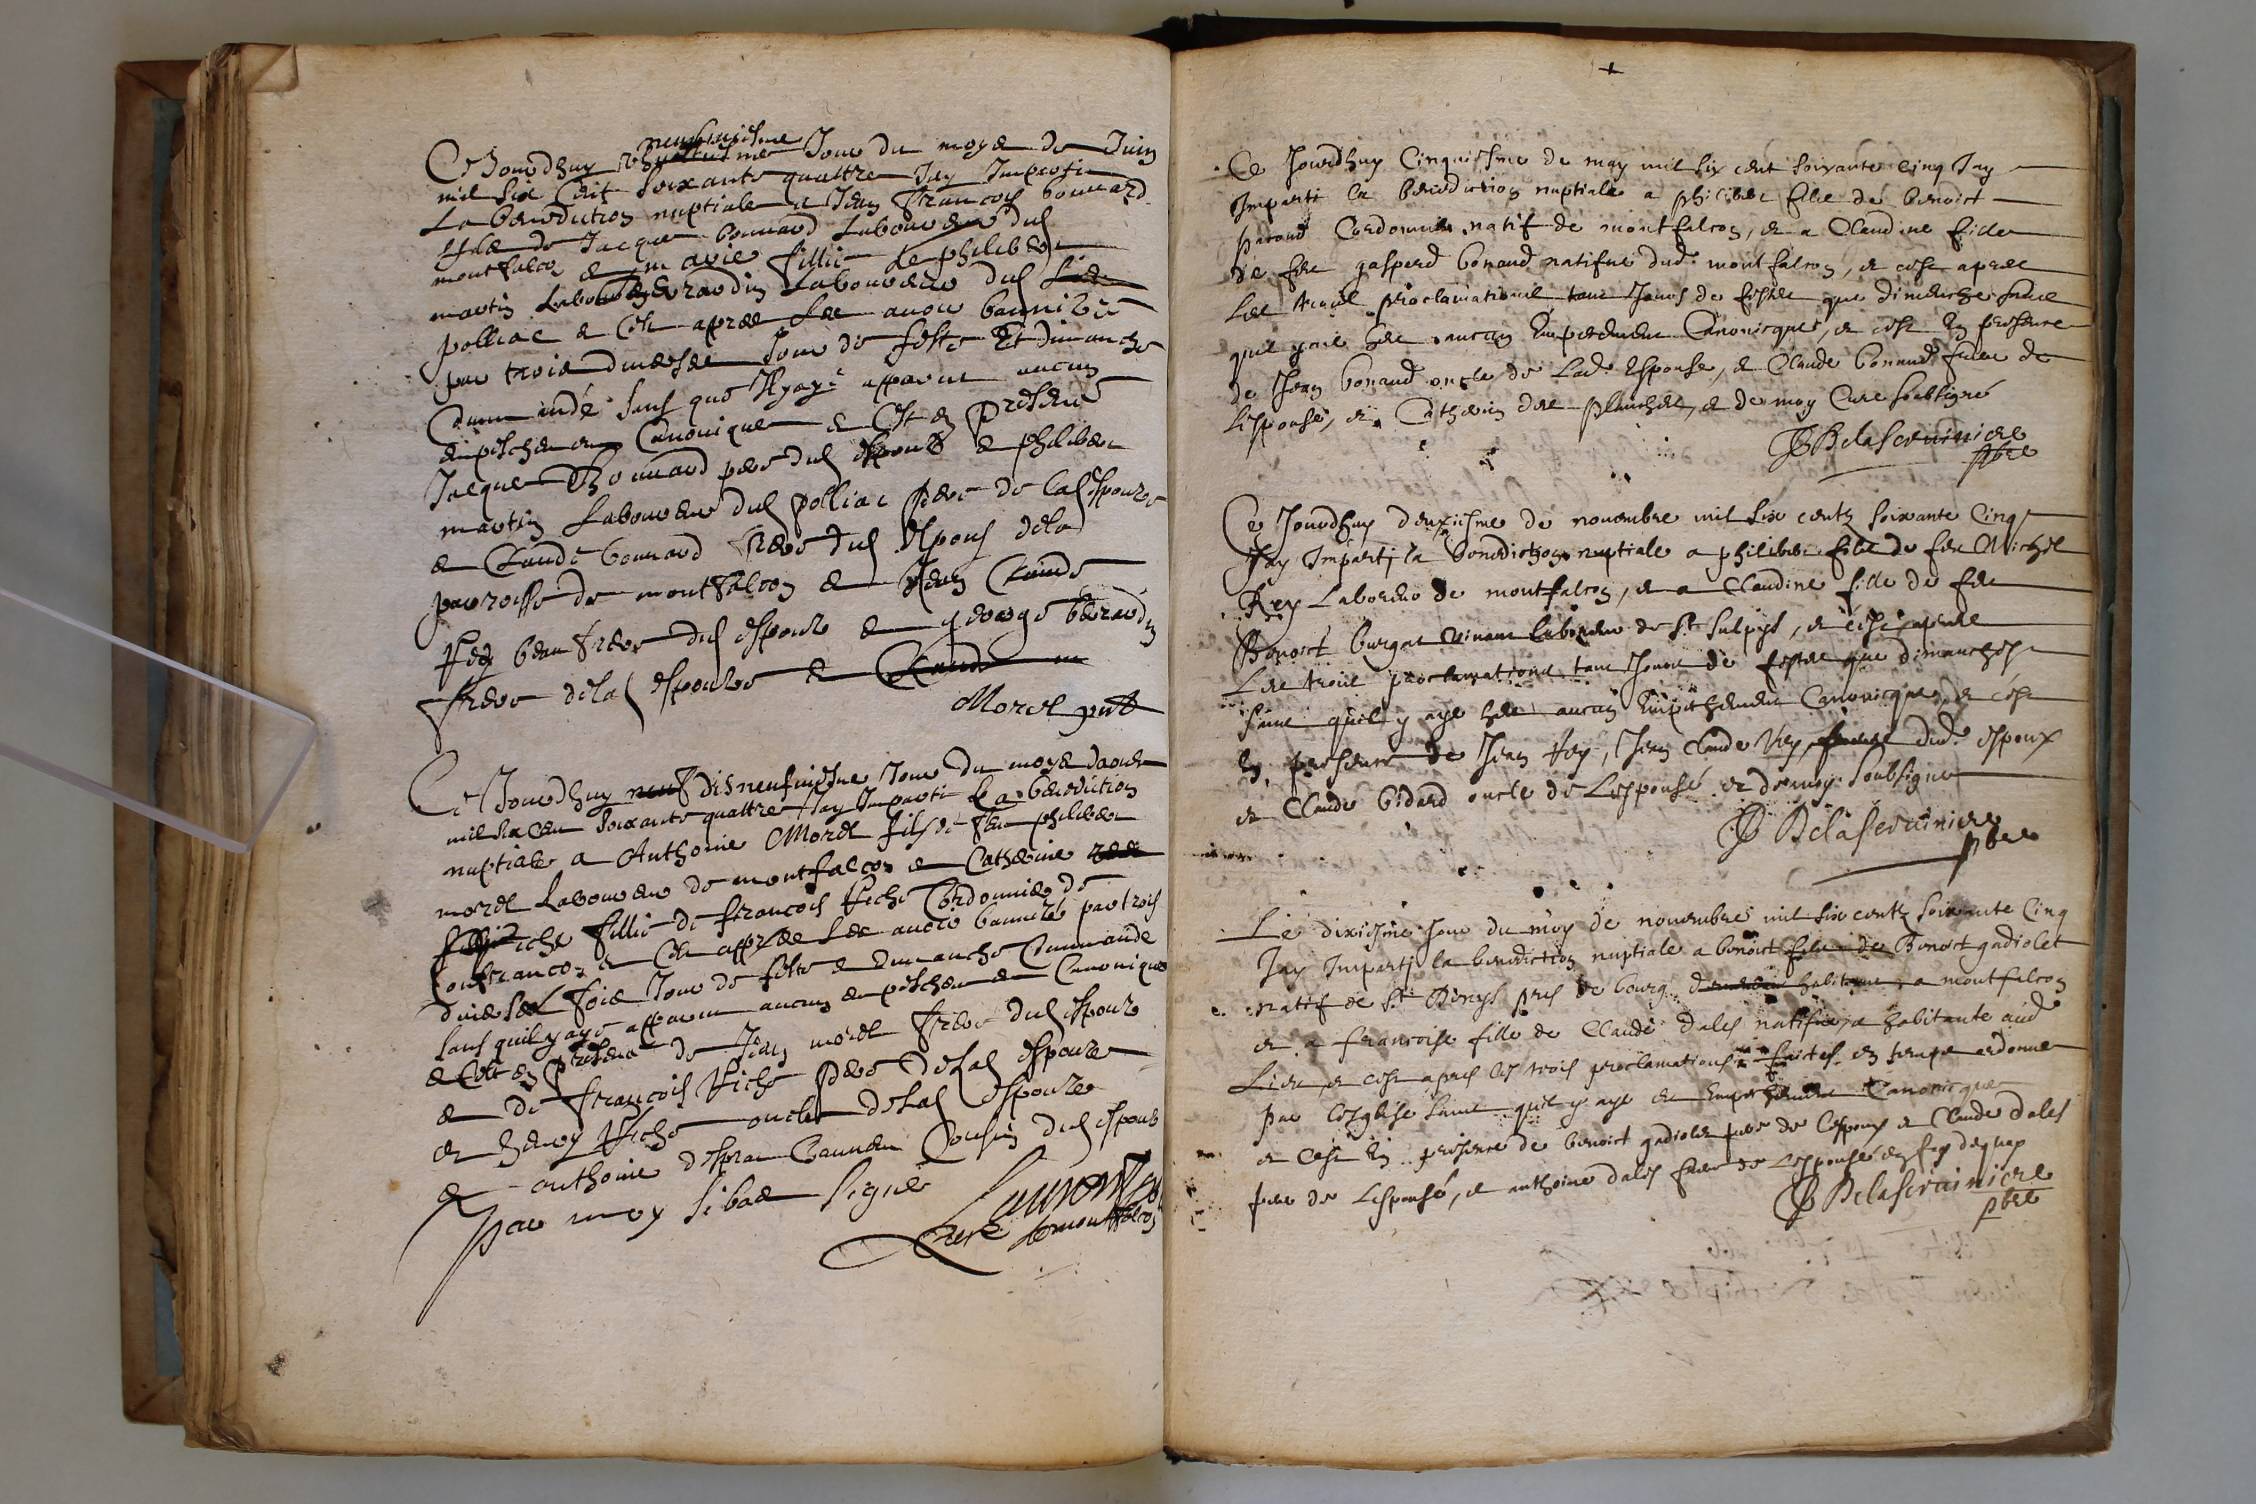 Ce Jourdhuy neufviesme Jour du moys de Juin
mil six cent soixante quattre Jay Imparti
La benediction nuptiale a Jean francois bonnard
filz de Jacque bonnard Laboureur dud
montfalcon et marie fillie de philibert
martin Laboureur dud
polliac et cest apres les avoir banniées
par trois diverses Jour de feste Et dimanche
Commandé sans que Il y aye apparut aucun
empeschement Canonique et Cest en presence
Jacque Bonnard pere dud espoux et philibert
martin Laboureur dud polliac pere de lad espouze
et Claude bonnard frere dud Espoux dela
parroisse de montfalcon et Jean Claude
fey beau frere dud espoux et george berardin
frere delad espouze et
Morel
Ce Jourdhuy disneufviesme Jour du moys daoust
mil six cent soixante quattre Jay Imparti La benediction
nuptiale a Anthoine Morel fils de feu philibert
morel Laboureur de montfalcon et Catherine
fiche fillie de francois fiche Cordonnier de
Confrancon et Cest apprés les avoir banniée par trois
diverses fois Jour de feste et dimanche Commandé
sans quil y aye apparut aucun empeschement Canonique
et Cest en presence de Jean morel frere dud espoux
et de francois fiche pere delad espouze
et henry fiche oncle delad espouze
et anthoine Cousin dud espoux
par moy sibas signé
Curé de montfalcon
+
Ce Jourdhuy Cinquiesme de may mil six cent soixante cinq Jay
Imparti la benediction nuptiale a philibert filz de benoict
parond Cordonnier natif de montfalcon, et a Claudine fille
de feu gasperd bonaud natifue dud montfalcon, et cest apres
Les trois proclamations tant Jours de festes que dimenche sans
quil y aie heu aucun Empechement Canonicque, et cest En presence
de Jean bonaud oncle de Lad. Espouse, et Claude bonaud frere de
Lespouse, et Catherin des planches, et de moy Curé soubsigné
Delaserviniere
pbre
Ce Jourdhuy deuxiesme de novembre mil six centz soixante Cinq
Jay Imparti la benediction nuptiale a philibert filz de feu Michel
Rey Laboureur de montfalcon, et a Claudine fille de feu
Benoict burgat vivant laboureur de St Sulpys, et cest apres
Les trois proclamations tant Jours de festes que dimanches
sans quil y aye heu aucun Empechement Canonicque, et cest
En presence de Jean fey, Jean Claude Rey, dud. espoux
et Claude bidard oncle de Lespouse et de moy soubsigné
Delaserviniere
pbre
Le dixiesme Jour du moy de novembre mil six centz soixante Cinq
Jay Imparti la benediction nuptiale a benoict filz de Benoict gadiolet
natif de St Denys pres de bourg habitant a montfalcon
et a francoise fille de Claude dales natifve, et habitante aud
Lieu, et cest apres les trois proclamations faictes en temps ordonné
par Lesglise sans quil y aye eu Empechement Canonicque
et cest En presence de benoict gadiolet pere de Lespoux et Claude dales
pere de Lespouse, et anthoine dales frere de Lespouse en foy dequoy
Delaserviniere
pbre